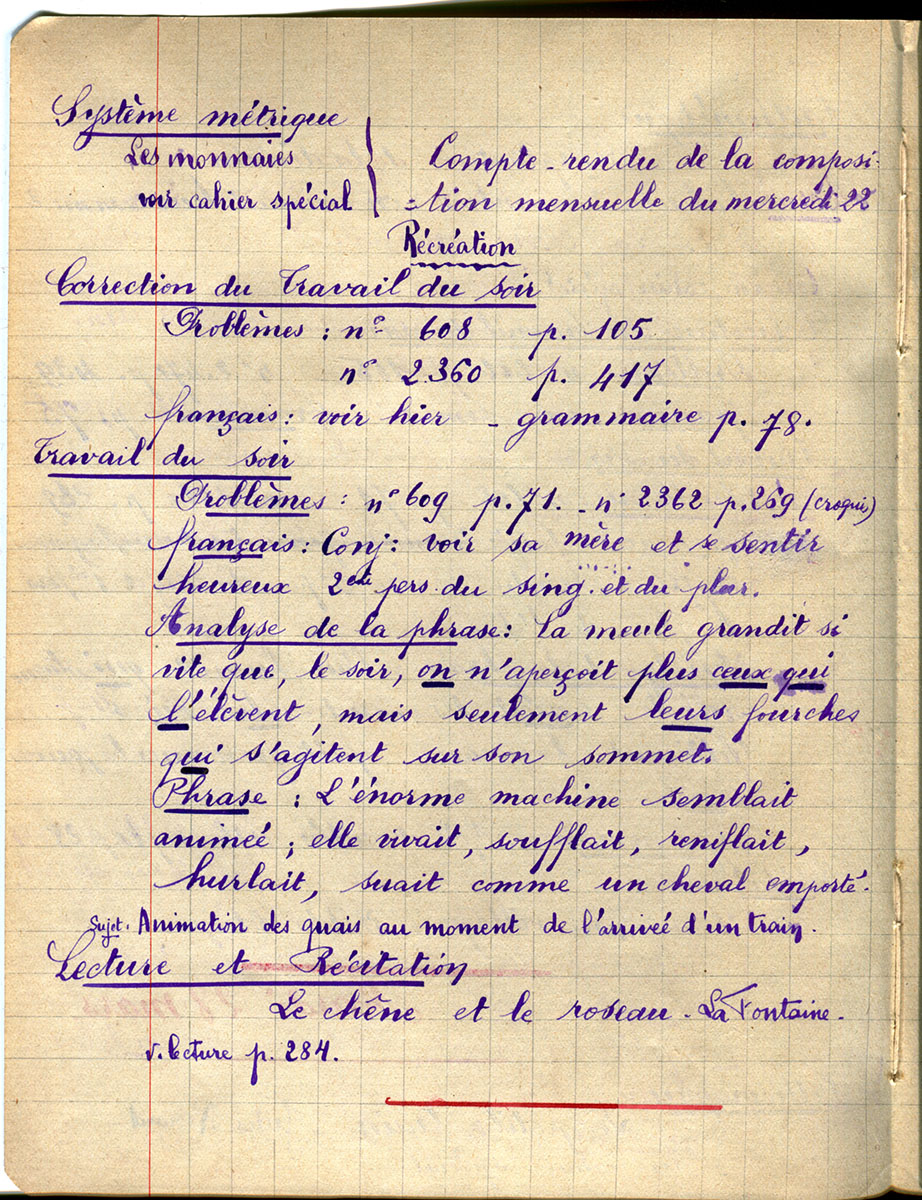 Système métrique
Les monnaies
voir cahier spécial
Compte-rendu de la composi-
=tion mensuelle du mercredi 22
Récréation
Correction du Travail du soir
Problèmes : nº 608 p. 105
nº 2.360 p. 417
français : voir hier - grammaire p. 78.
Travail du soir
Problèmes : nº 609 p. 71. - nº 2362 p. 269 (croquis)
français : Conj : voir sa mère et se sentir
heureux 2e pers. du sing. et du plur.
Analyse de la phrase : La meule grandit si
vite que, le soir, on n'aperçoit plus ceux qui
l'élèvent, mais seulement leurs fourches
qui s'agitent sur son sommet.
Phrase : L'énorme machine semblait
animeé ; elle vivait, soufflait, reniflait,
hurlait, suait comme un cheval emporté.
Sujet. Animation des quais au moment de l'arriveé d'un train.
Lecture et Récitation
Le chêne et le roseau - La Fontaine -
v. lecture p. 284.